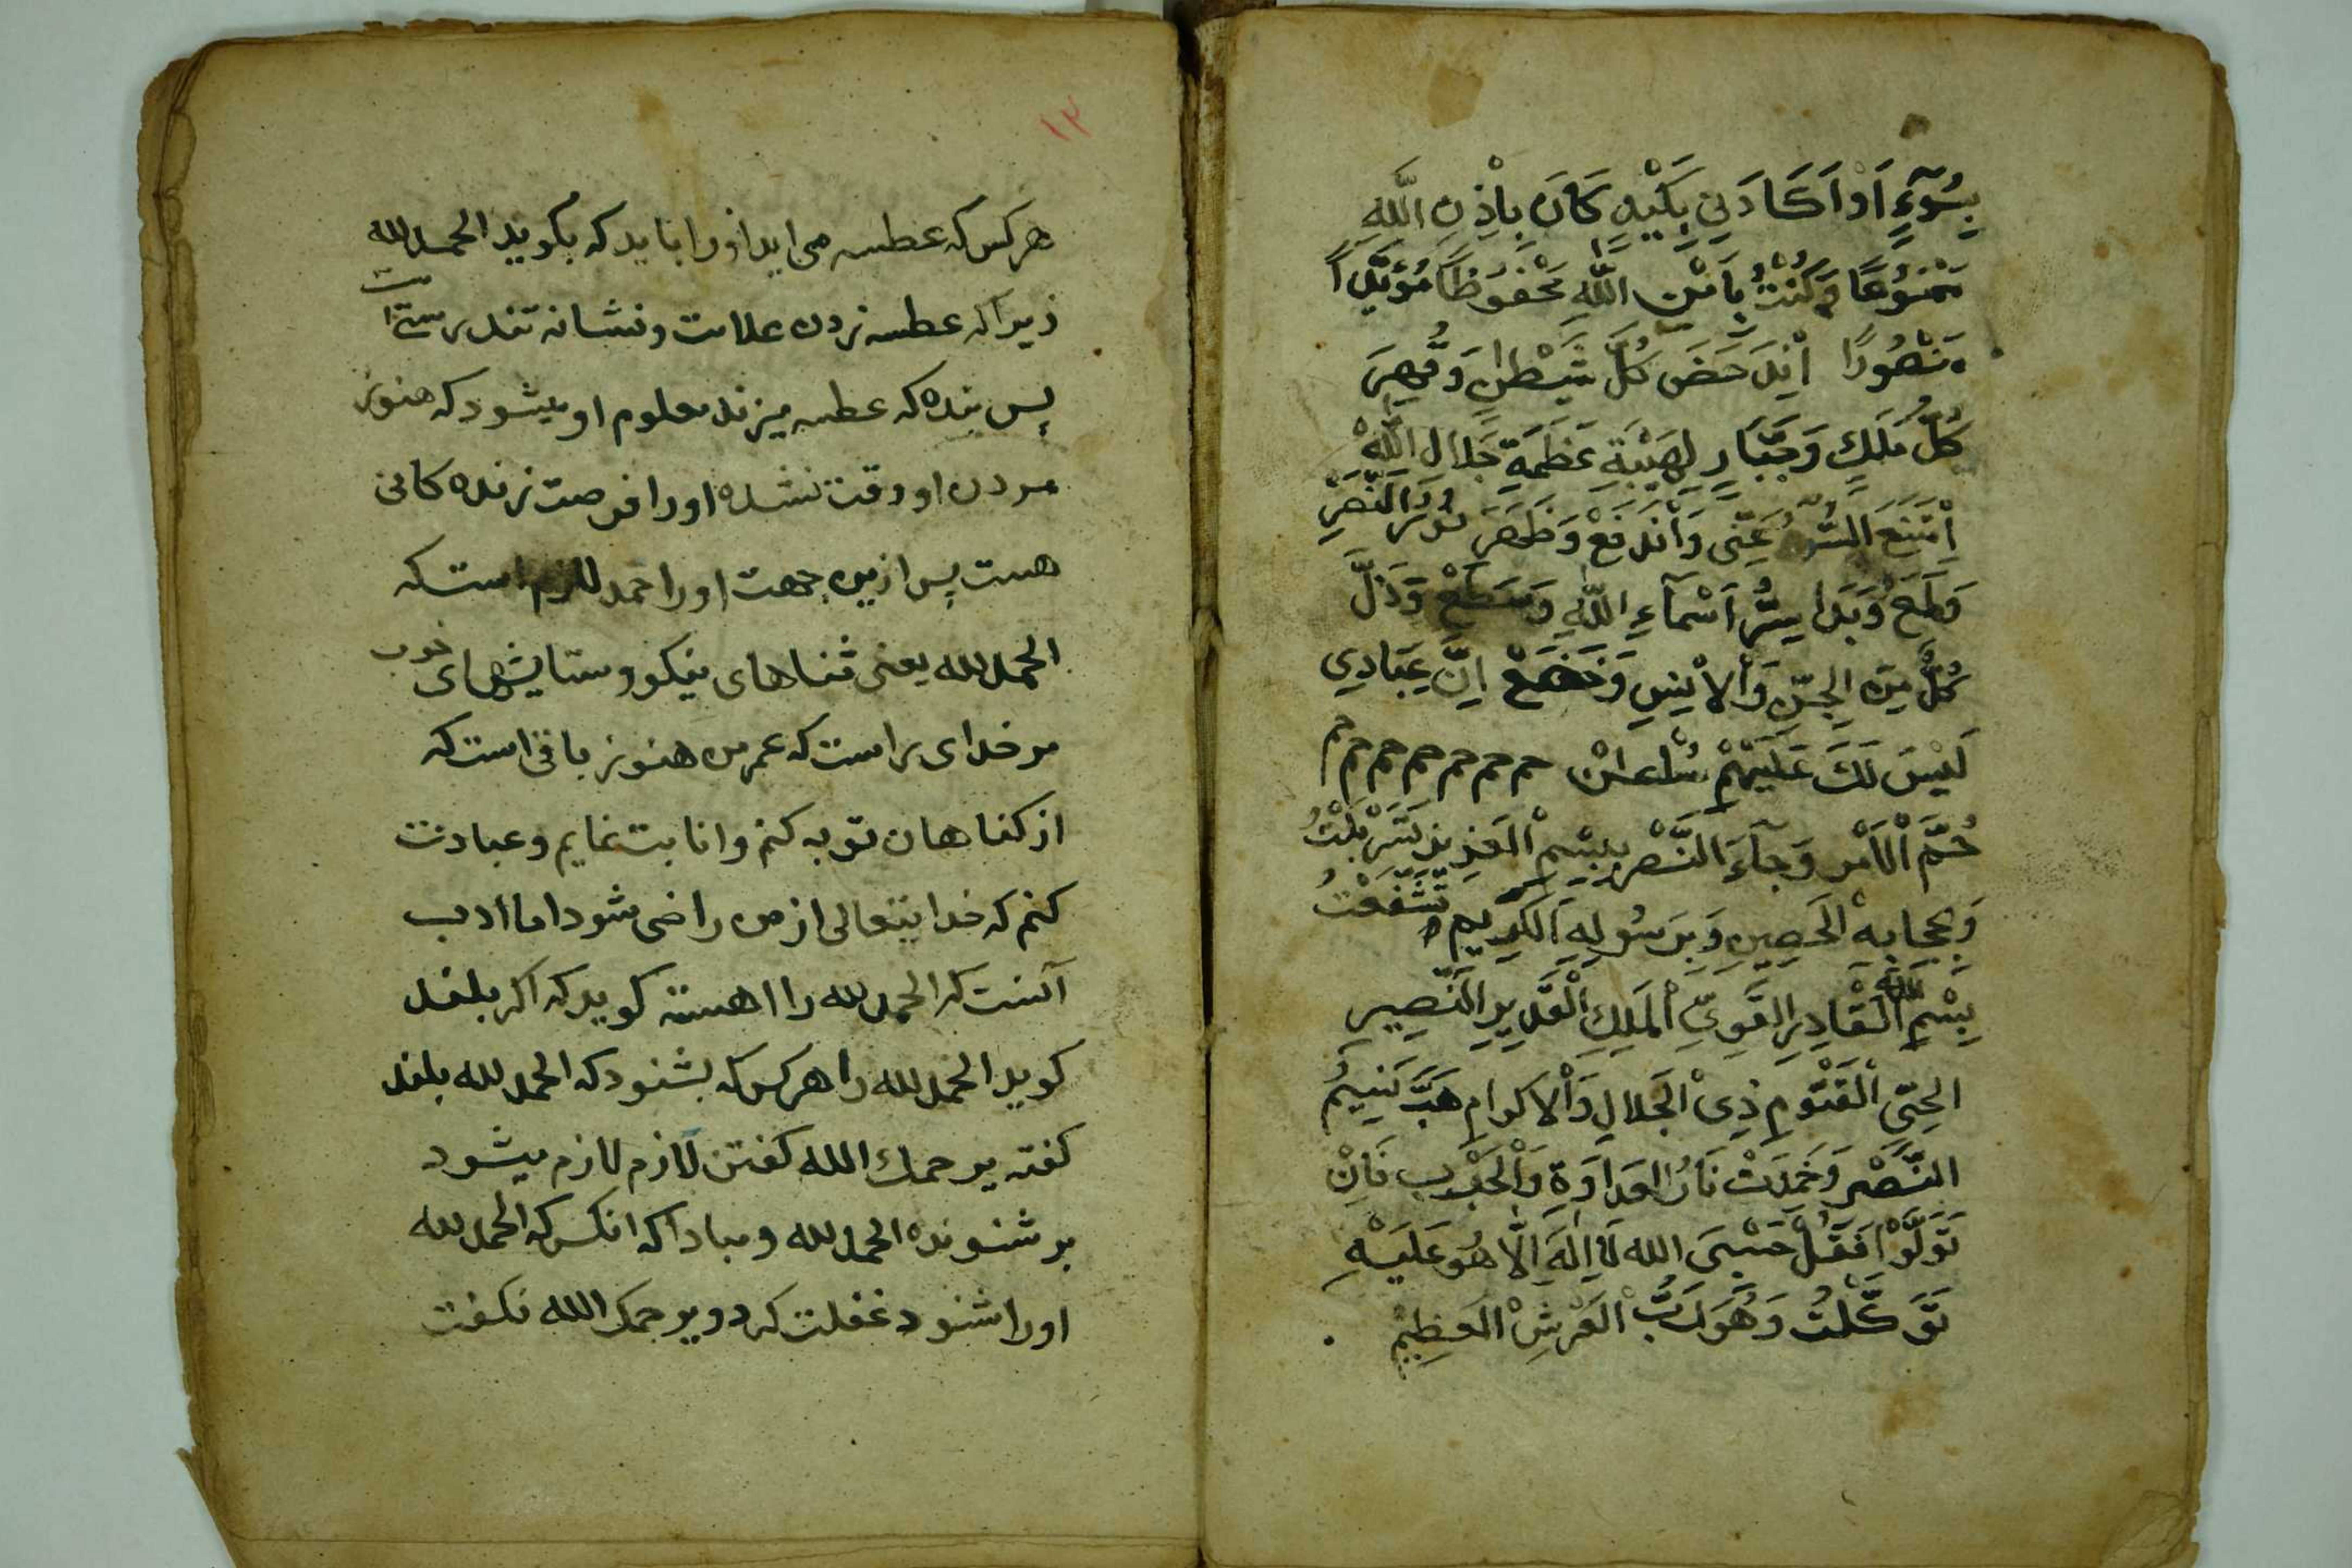 بِسُوٓءٍ اَوْ اَكَادَنِي بِكَيْدٍ كَانَ بِاِذْنِ اللّٰهِ
مَمْنُوعًا وَكُنْتُ بِاَمْنِ اللّٰهِ مَحْفُوظًا مُؤَيَّدًا
مَنْصُورًا اِنْدَحَضَ كُلُّ شَيْطٰنٍ وَقُهِرَ
كُلُّ مَلِكٍ وَجَبَّارٍ لِهَيْبَةِ عَظَمَةِ جَلَالِ اللّٰهِ
اِمْتَنَعَ السُّوٓءُ عَنِّى وَانْدَفَعْ وَظَهَرَ نُورُ النَّصْرِ
وَلَمَعْ وَبَدَا سِرُّ اَسْمَآءِ اللّٰهِ وَسَطَعْ وَذَلَّ
كُلٌّ مِنَ الْجِنِّ وَالْاِنْسِ وَخَضَعْ اِنَّ عِبَادِي
لَيْسَ لَكَ عَلَيْهِمْ سُلْطٰنْ حم حم حم حم حم حم حم
حُمَّ الْاَمْرُ وَجَآءَ النَّصْرُ بِبِسْمِ الْعَزِيزِ تَسَرْبَلْتُ
وَبِحِجَابِهِ الْحَصِينِ وَبِرَسُولِهِ الْكَرِيمِ تَشَفَّعْتُ
بِسْمِ اللّٰهِ الْقَادِرِ الْقَوِيِّ الْمَلِكِ الْقَدِيرِ النَّصِيرِ
الْحَيِّ الْقَيُّومِ ذِى الْجَلَالِ وَالْاِكْرَامِ هَبَّ نَسِيمُ
النَّصْرِ وَخَمِدَتْ نَارُ الْعَدَاوَةِ وَالْحَرْبِ فَاِنْ
تَوَلَّوْا فَقُلْ حَسْبِىَ اللّٰه لَا اِلٰهَ اِلَّا هُوَ عَلَيْهِ
تَوَكَّلْتُ وَهُوَ رَبُّ الْعَرْشِ الْعَظِيمْ
١٢
هر كس كه عطسه مى ايد اورا بايد كه بكويد الحمدلله
زيرا كه عطسه زدن علامت و نشانه تندرستى است
پس بنده كه عطسه ميزند معلوم او ميشود كه هنوز
مردن او وقت نشده اورا فرصت زنده كانى
هست پس ازين جهت اورا حمد لازم است كه
الحمدلله يعنى ثناهاى نيكو و ستايشهاى خوب
مر خداى راست كه عمر من هنوز باقى است كه
از كناهان توبه كنم و انابت نمايم و عبادت
كنم كه خدايتعالى از من راضى شود اما ادب
آنست كه الحمدلله را اهسته كويد كه اكر بلند
كويد الحمدلله را هر كس كه بشنود كه الحمدلله بلند
كفته يرحمك الله كفتن لازم لازم ميشود
بر شنونده الحمدلله و مبادا كه انكس كه الحمدلله
اورا شنود غفلت كرد و يرحمك الله نكفت